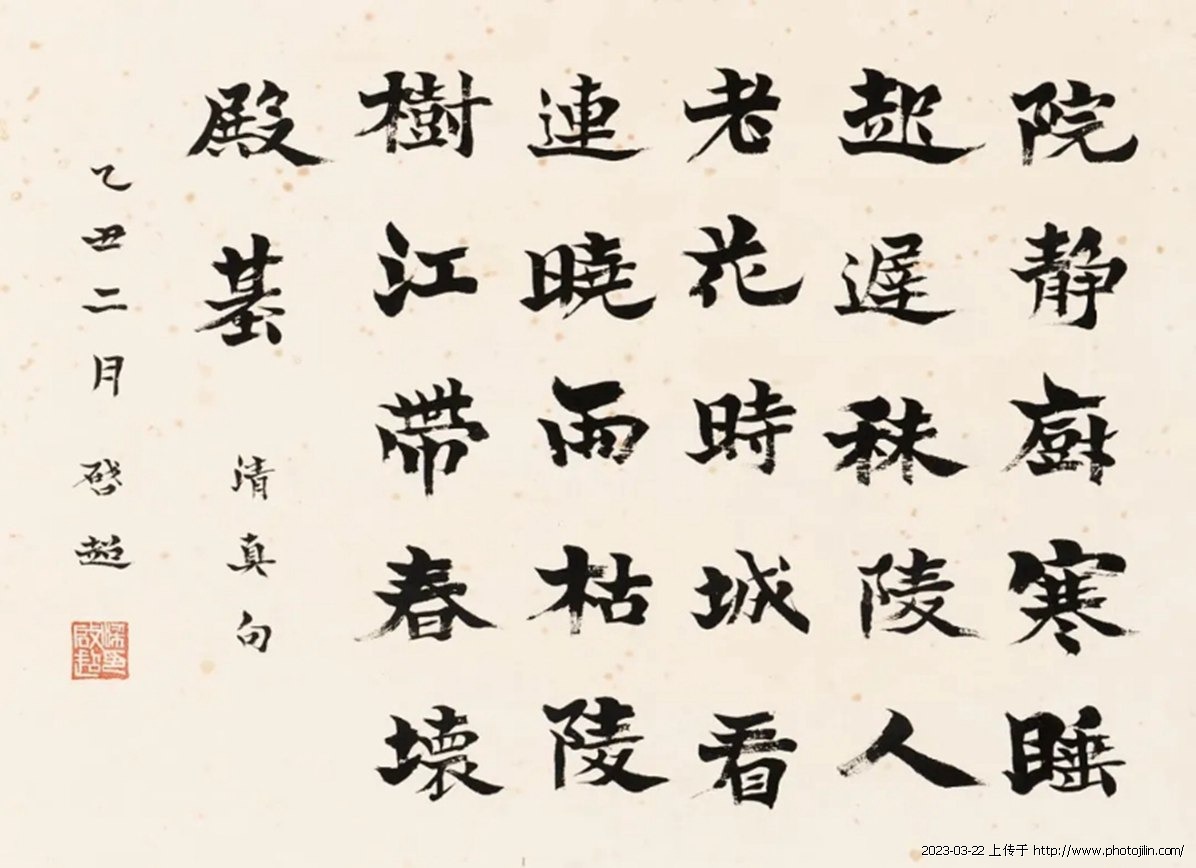 院静廚寒睡
起遲秣陵人
老花時城看
連曉雨枯陵
樹江帶春壞
殿基 清真句
乙丑二月 啓超
梁印啟超
2023-03-22 上传于 http://www.photojilin.com/